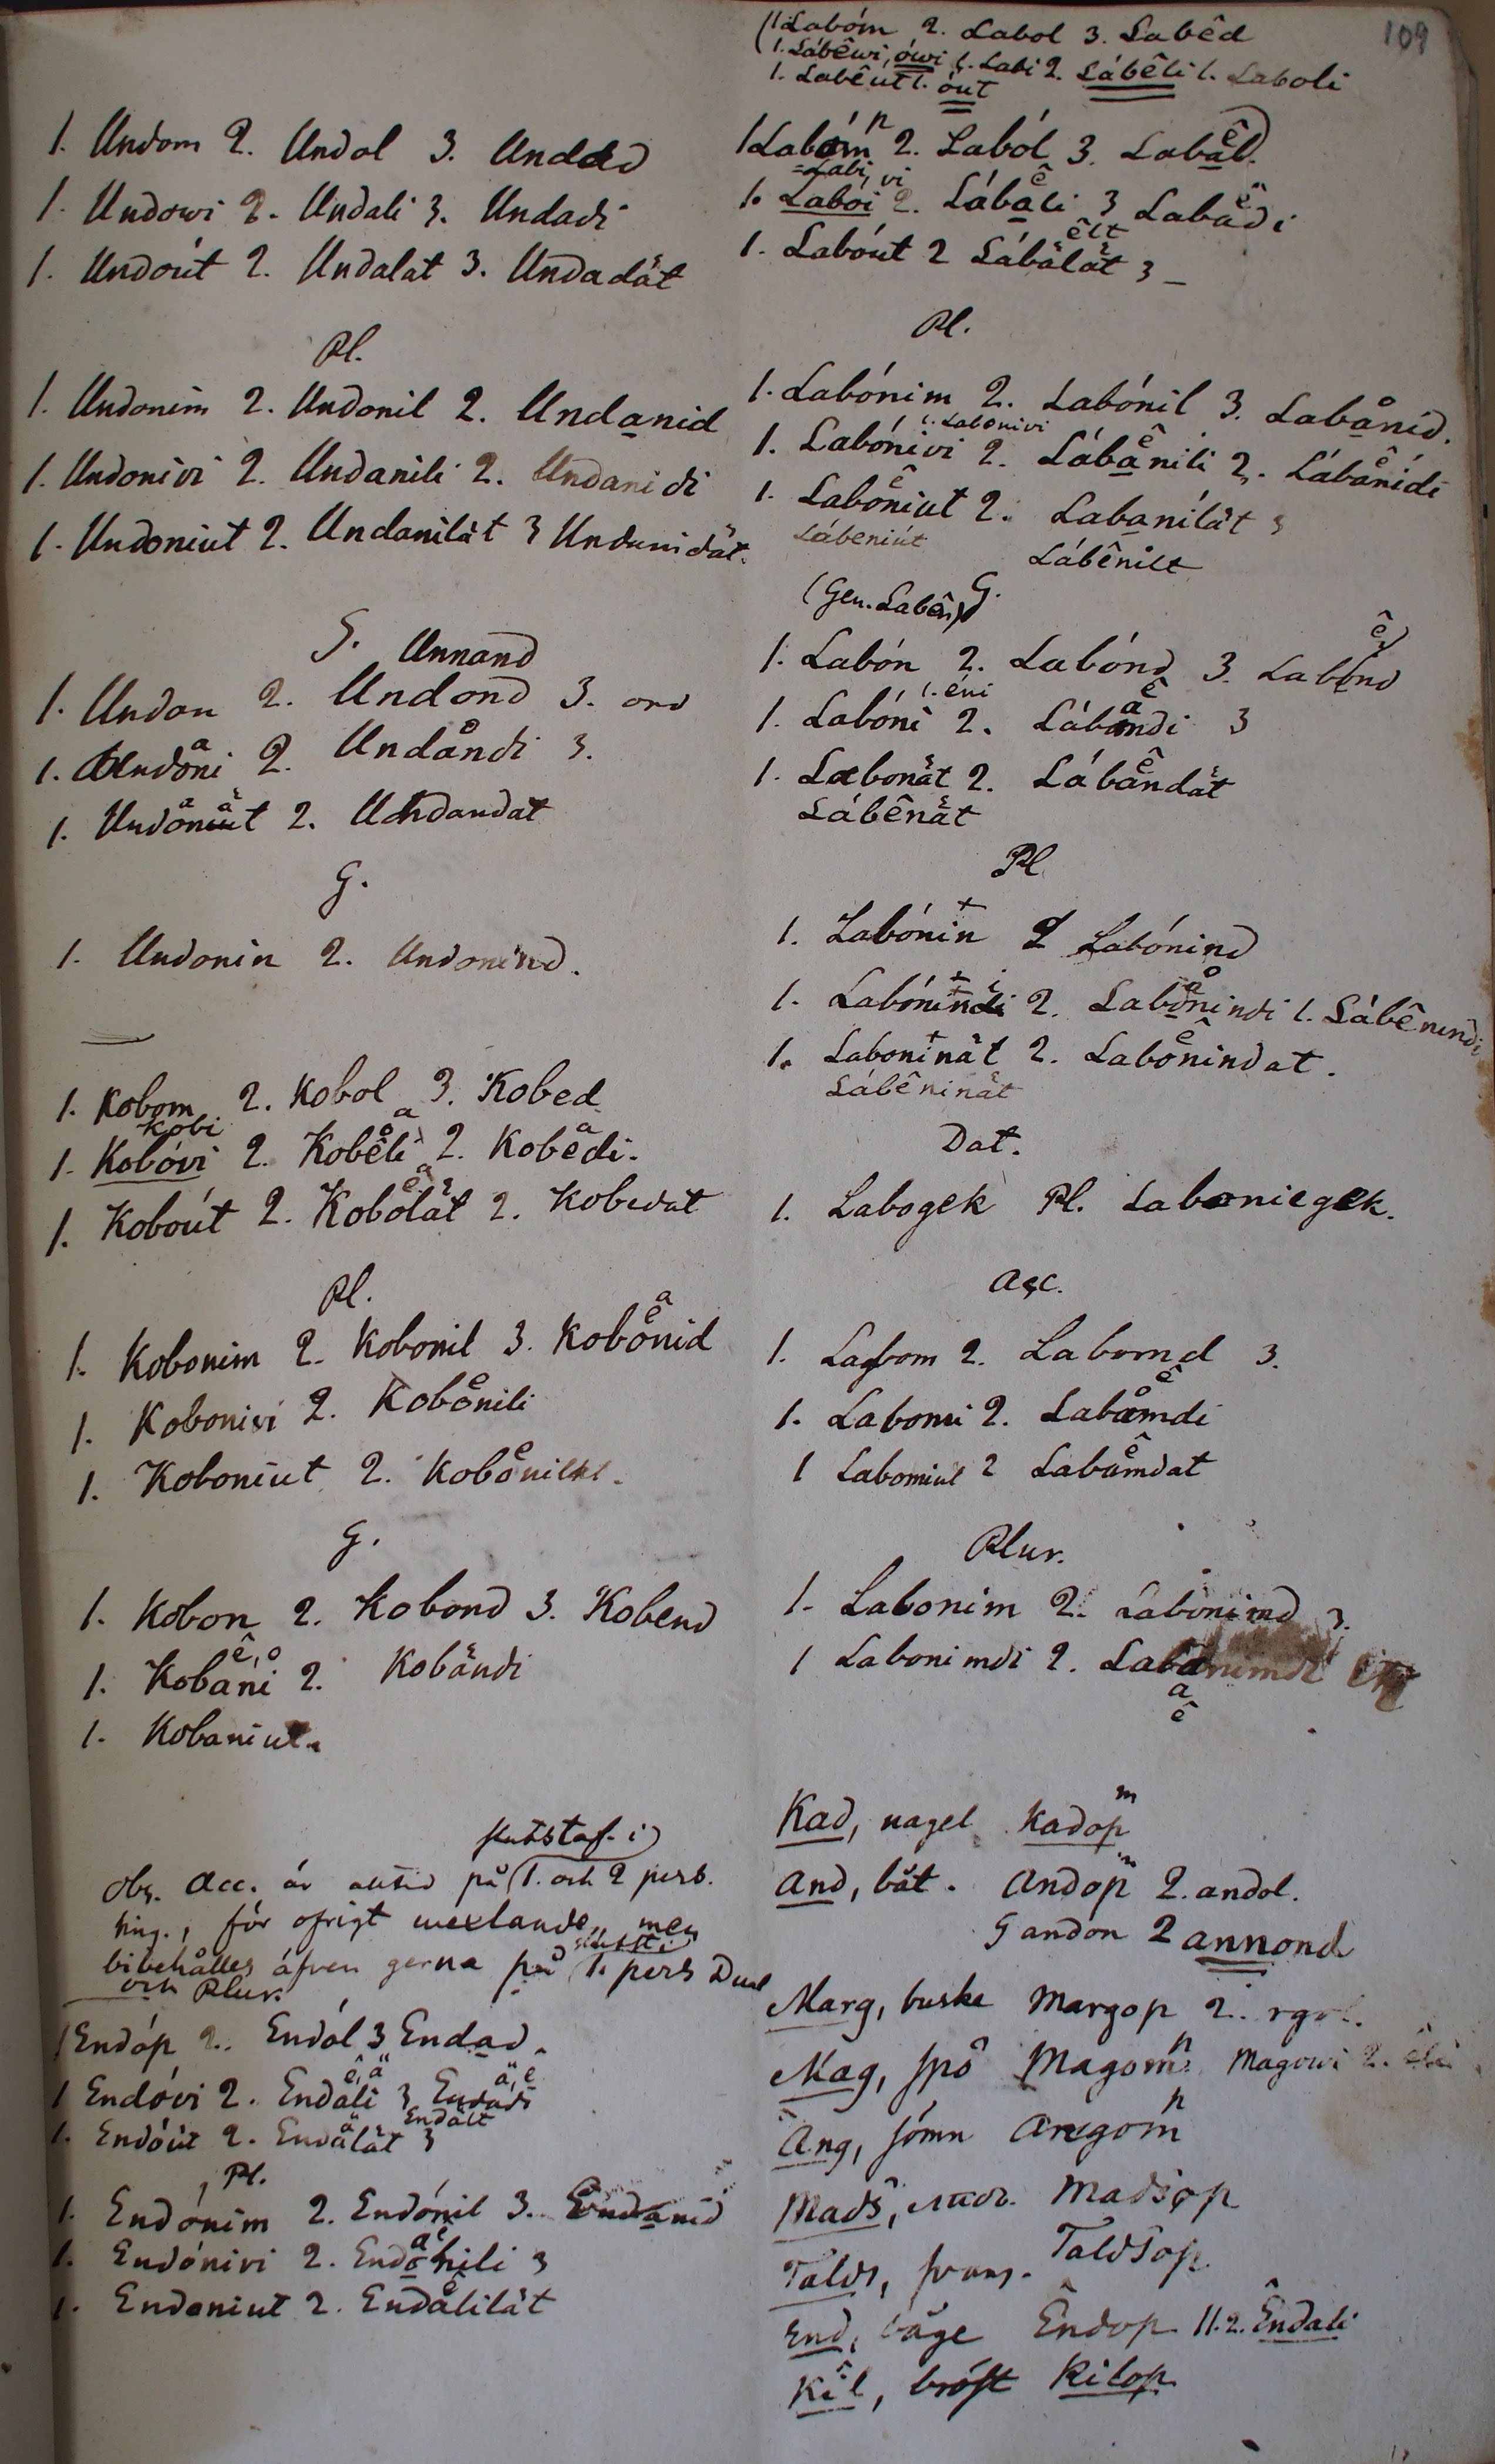 109
1. Undom 2. Undol 3. Undad
1. Undowi 2. Undali 3. Undadi
1. Undoút 2. Undalat 3. Undadät
Pl.
1. Undonim 2. Undonil 2. Undanid
1. Undonivi 2. Undanili 2. Undanidi
1. Undoniut 2. Undanilät 3 Undanidät.
G. Unnand
1. Undon 2. Undond 3. ond
1. Undoni 2. Undåndi 3.
1. Undonät 2. Undandat
G.
1. Undonin 2. Undonind.
1. Kobom 2. Kobol 3. Kobed
Kobi
1. Kobóvi 2. Kobeli 2. Kobedi.
1. Koboút 2. Kobolät 2. Kobedät
Pl.
1. Kobonim 2. Kobonil 3. Kobonid
1. Kobonivi 2. Kobonili
1. Koboniut 2. Kobonilät.
G.
1. Kobon 2. Kobond 3. Kobend
1. Kobani 2. Kobändi
1. Kobaniut.
slutstaf. i
Obs. Acc. är alltid på 1. och 2 pers.
sing., för öfrigt wexlande, men
bibehålles äfven gerna på 1. pers Dual
och Plur.
1 Endóp 2. Endól 3 Endad.
1 Endóvi 2. Endali 3 Endadi
Endält
1. Endóút 2. Endälät 3
Pl.
1. Endónim 2. Endónil 3. Endanid
1. Endónivi 2. Endonili 3
1. Endoniut 2. Endålilät
(1 Labóm 2. Labol 3. Labêd
(1. Lábêwi, ówi l. Labi 2. Lábêli l. Laboli
1. Labêut l. óut
1 Labóm 2. Laból 3. Labål.
=Labi, vi
1. Labói 2. Lábali 3 Labadi
êlt
1. Labóut 2 Lábålät 3 –
Pl.
1. Labónim 2. Labónil 3. Labånid.
l. Labonivi
1. Labónivi 2. Lábanili 2. Lábånidi
1. Laboniut 2. Labanilät 3
Lábeniút Lábênilt
(Gen. Labên) G.
1. Labón 2. Labónd 3. Labend
l. éni
1. Labóni 2. Lábåndi 3
1. Labonät 2. Lábåndät
Lábênät
Pl.
1. Labónin 2 Labónind
1. Labónindi 2. Labonindi l. Lábênindi
1. Laboninät 2. Labonindat.
Lábêninät
Dat.
1. Labogek Pl. Laboniegek.
Acc.
1. Labom 2. Labomd 3.
1. Labomi 2. Labåmdi
1 Labomiut 2 Labåmdat
Plur.
1. Labonim 2. Labonimd 3.
1 Labonimdi 2. Labanimdi
Kad, nagel Kadop
And, båt. Andop 2. andol.
G andon 2 annond
Marg, buske Margop 2.
Mag, spö Magom Magowi 2.
Ang, sömn Angom
Mads, Madsop
Talds, svans. Taldsop
End, båge Êndop II.2. Êndali
Kil, bröst Kilop